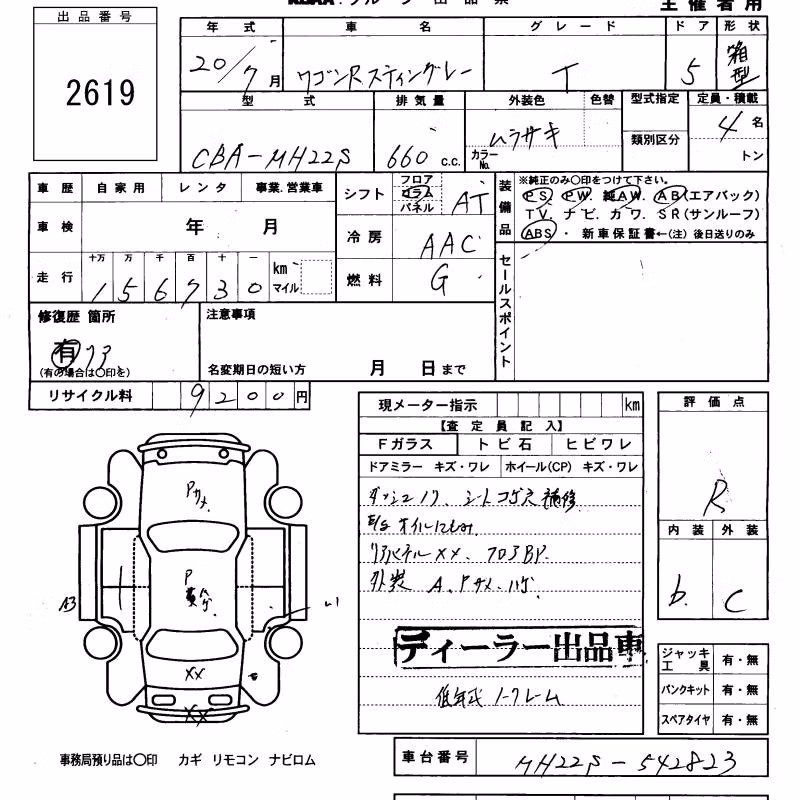 出品番号
2619
主催者用
年式 車名 グレード ドア 形状
20/7月 ワゴンRスティングレー T 5 箱型
型式 排気量 外装色 色替 型式指定 定員・積載
CBA-MH22S 660 c.c. ムラサキ カラーNo. 類別区分 4名
トン
車歴 自家用 レンタ 事業.営業車
シフト フロア コラム パネル AT
装備品 ※純正のみ〇印をつけて下さい。
PS. PW. 純AW. AB(エアバック)
TV. ナビ. カワ. SR(サンルーフ)
ABS ・ 新車保証書←(注) 後日送りのみ
車検 年 月
冷房 AAC
走行 十万 万 千 百 十 一
156730 km マイル
燃料 G
セールスポイント
修復歴 箇所
有 リア
(有の場合は〇印を)
注意事項
名変期日の短い方 月 日まで
リサイクル料 9200円
現メーター指示 km
【査定員記入】
Fガラス トビ石 ヒビワレ
ドアミラー キズ・ワレ ホイール(CP) キズ・ワレ
ダッシュノリ、シートコゲ穴補修
E/g オイルにじみ.
リアパネルXX、フロアBP.
外装 A、Pサメ、ハゲ.
ディーラー出品車
低年式 ノークレーム
評価点
R
内装 外装
b. C
Pサメ.
P
ハゲ
A3
XX
XX
ジャッキ工具 有・無
パンクキット 有・無
スペアタイヤ 有・無
事務局預り品は〇印 カギ リモコン ナビロム
車台番号 MH22S-542823